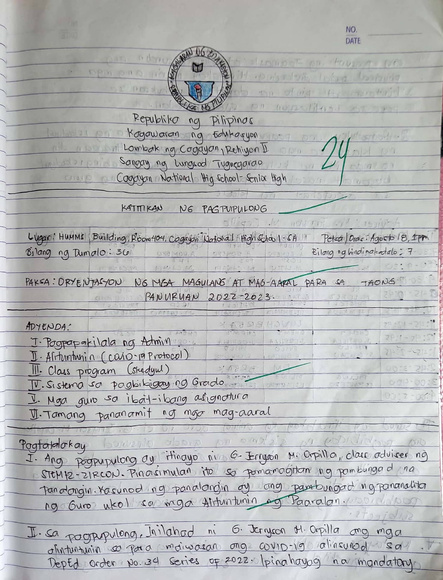 NO.
DATE
Republika ng Pilipinas
Kagawaran ng Edukasyon
Lambak ng Cagayan, Rehiyon II
Sangay ng Lungsod Tuguegarao
Cagayan National High School- Senior High
24
KATITIKAN NG PAGPUPULONG
Lugar: HUMMS Building, Room 404, Cagayan National High School - SH
Petsa/Oras: Agosto 18, 1pm
Bilang ng Dumalo: 36
Bilang ng hindi nakadalo: 7
PAKSA: ORYENTASYON NG MGA MAGULANG AT MAG-AARAL PARA SA TAONG
PANURUAN 2022-2023.
ADYENDA:
I. Pagpapakilala ng Admin
II. Alituntunin (COVID-19 Protocol)
III. Class program
IV. Sistema sa pagbibigay ng Grado
V. Mga guro sa ibat-ibang asignatura
VI. Tamang pananamit ng mga mag-aaral
Pagtatalakay
I. Ang pagpupulong ay itinayo ni G. Jerryson M. Orpilla, class adviser ng
STEM12-ZIRCON. Pinasimulan ito sa pamamagitan ng pambungad na
panalangin. Kasunod ng panalangin ay ang pambungad ng pananalita
ng Guro ukol sa mga Alituntunin ng Paaralan.
II. sa pagpupulong, Inilahad ni G. Jerryson M. Orpilla ang mga
alintuntunin sa para maiwasan ang COVID-19 alinsunod sa
DepEd Order No. 34 series of 2022. Ipinahayag na mandatory